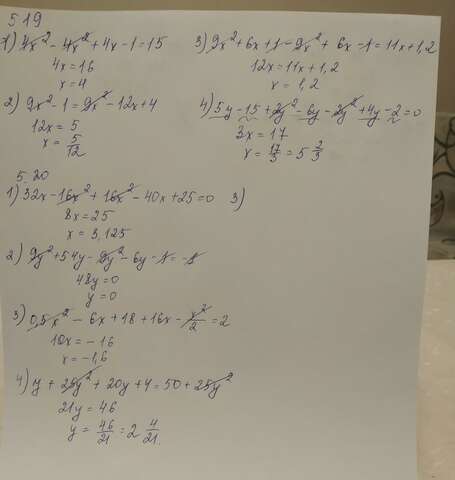 519
1) 4x² - 4x² + 4x - 1 = 15
4x = 16
x = 4
2) 9x² - 1 = 9x² - 12x + 4
12x = 5
x = 5/12
3) 9x² + 6x + 1 - 9x² + 6x - 1 = 11x + 1,2
12x = 11x + 1,2
x = 1,2
4) 5y - 15 + 2y² - 6y - 2y² + 4y - 2 = 0
3x = 17
x = 17/3 = 5 2/3
5 20
1) 32x - 16x² + 16x² - 40x + 25 = 0
8x = 25
x = 3,125
3)
2) 9y² + 54y - 9y² - 6y - 1 = -1
48y = 0
y = 0
3) 0,5x² - 6x + 18 + 16x - x²/2 = 2
10x = -16
x = -1,6
4) y + 25y² + 20y + 4 = 50 + 25y²
21y = 46
y = 46/21 = 2 4/21